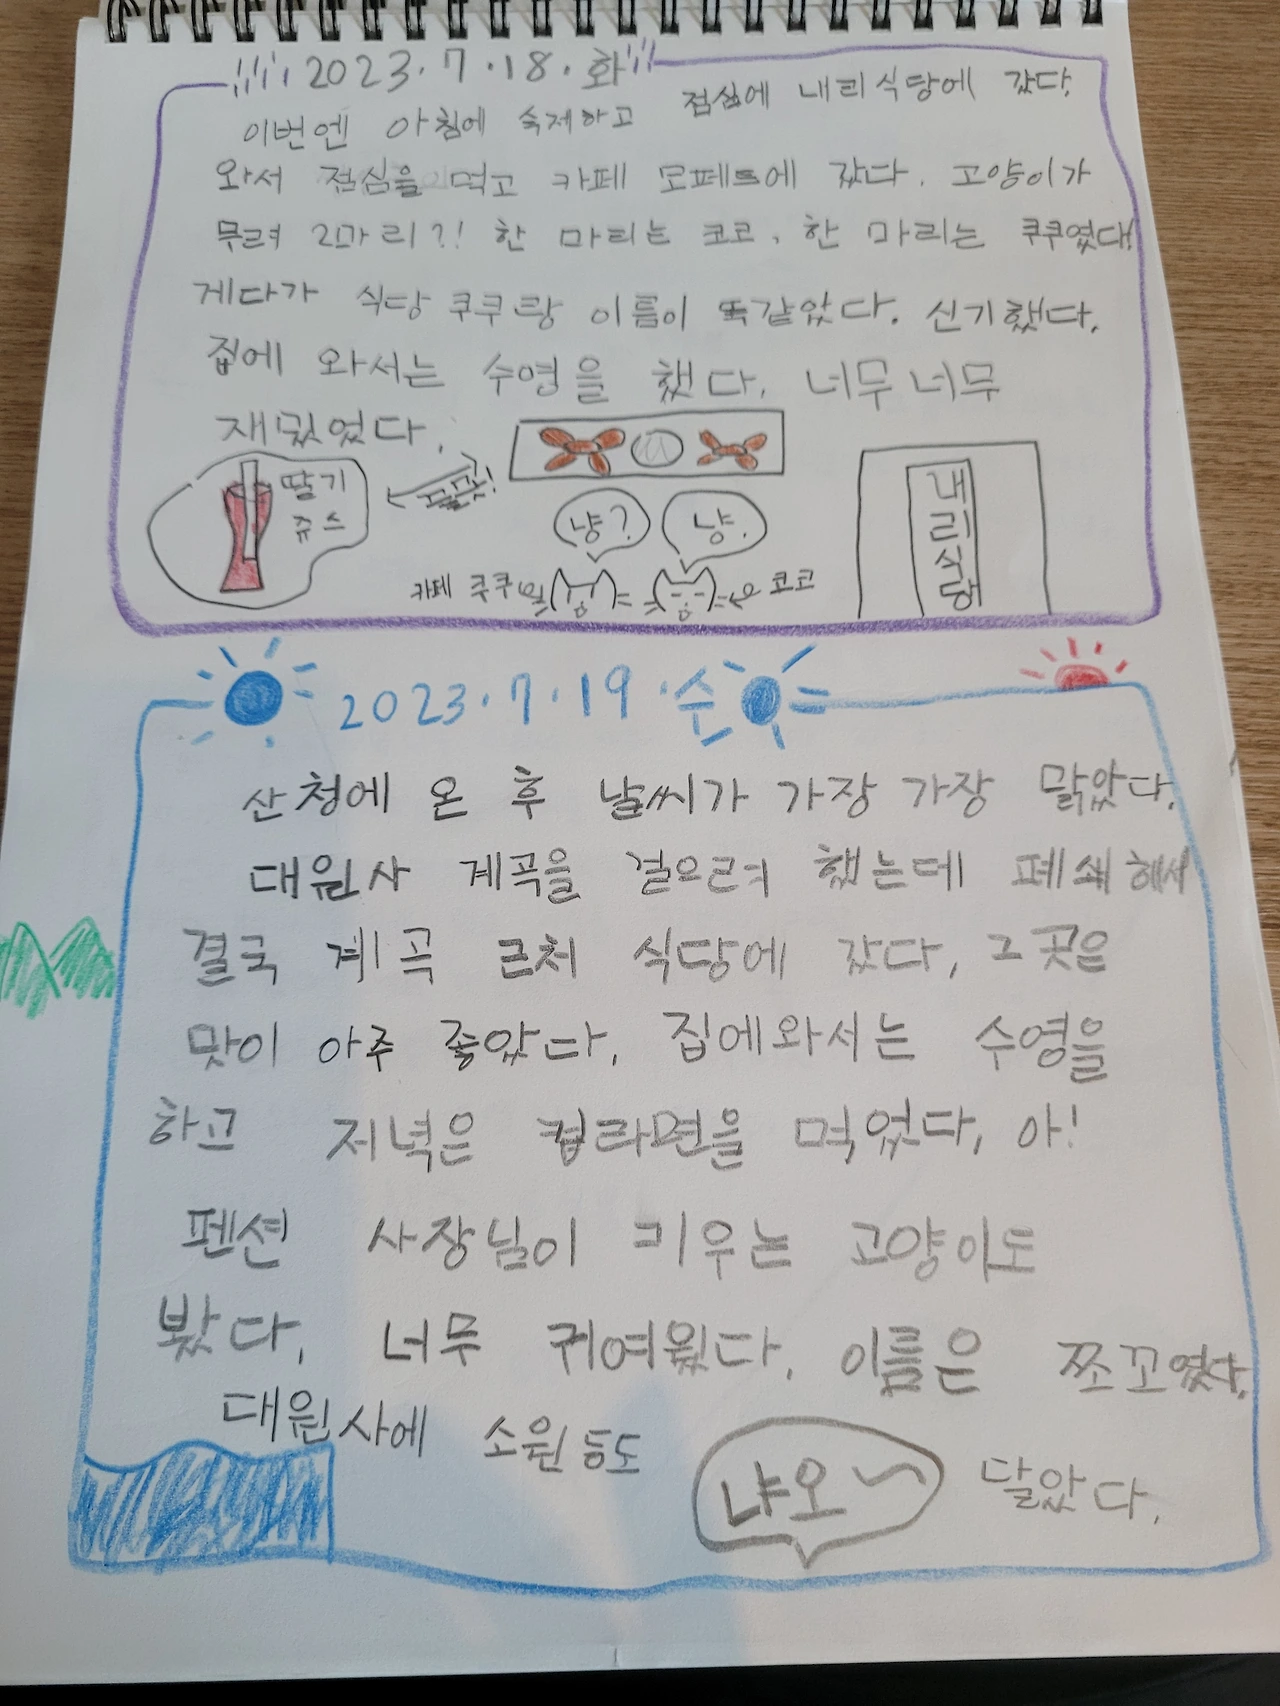 2023.7.18.화
이번엔 아침에 숙제하고 점심에 내리식당에 갔다.
와서 점심을 먹고 카페 모페트에 갔다. 고양이가
무려 2마리?! 한 마리는 코코, 한 마리는 쿠쿠였다!
게다가 식당 쿠쿠랑 이름이 똑같았다. 신기했다.
집에 와서는 수영을 했다. 너무너무
재밌었다.
딸기
쥬스
냥?
냥.
카페 쿠쿠
코코
내리식당
2023.7.19.수
산청에 온 후 날씨가 가장 가장 맑았다.
대원사 계곡을 걸으려 했는데 폐쇄해서
결국 계곡 근처 식당에 갔다, 그곳은
맛이 아주 좋았다. 집에와서는 수영을
하고 저녁은 컵라면을 먹었다, 아!
펜션 사장님이 키우는 고양이도
봤다, 너무 귀여웠다. 이름은 쪼꼬였다.
대원사에 소원등도 달았다.
냐오~